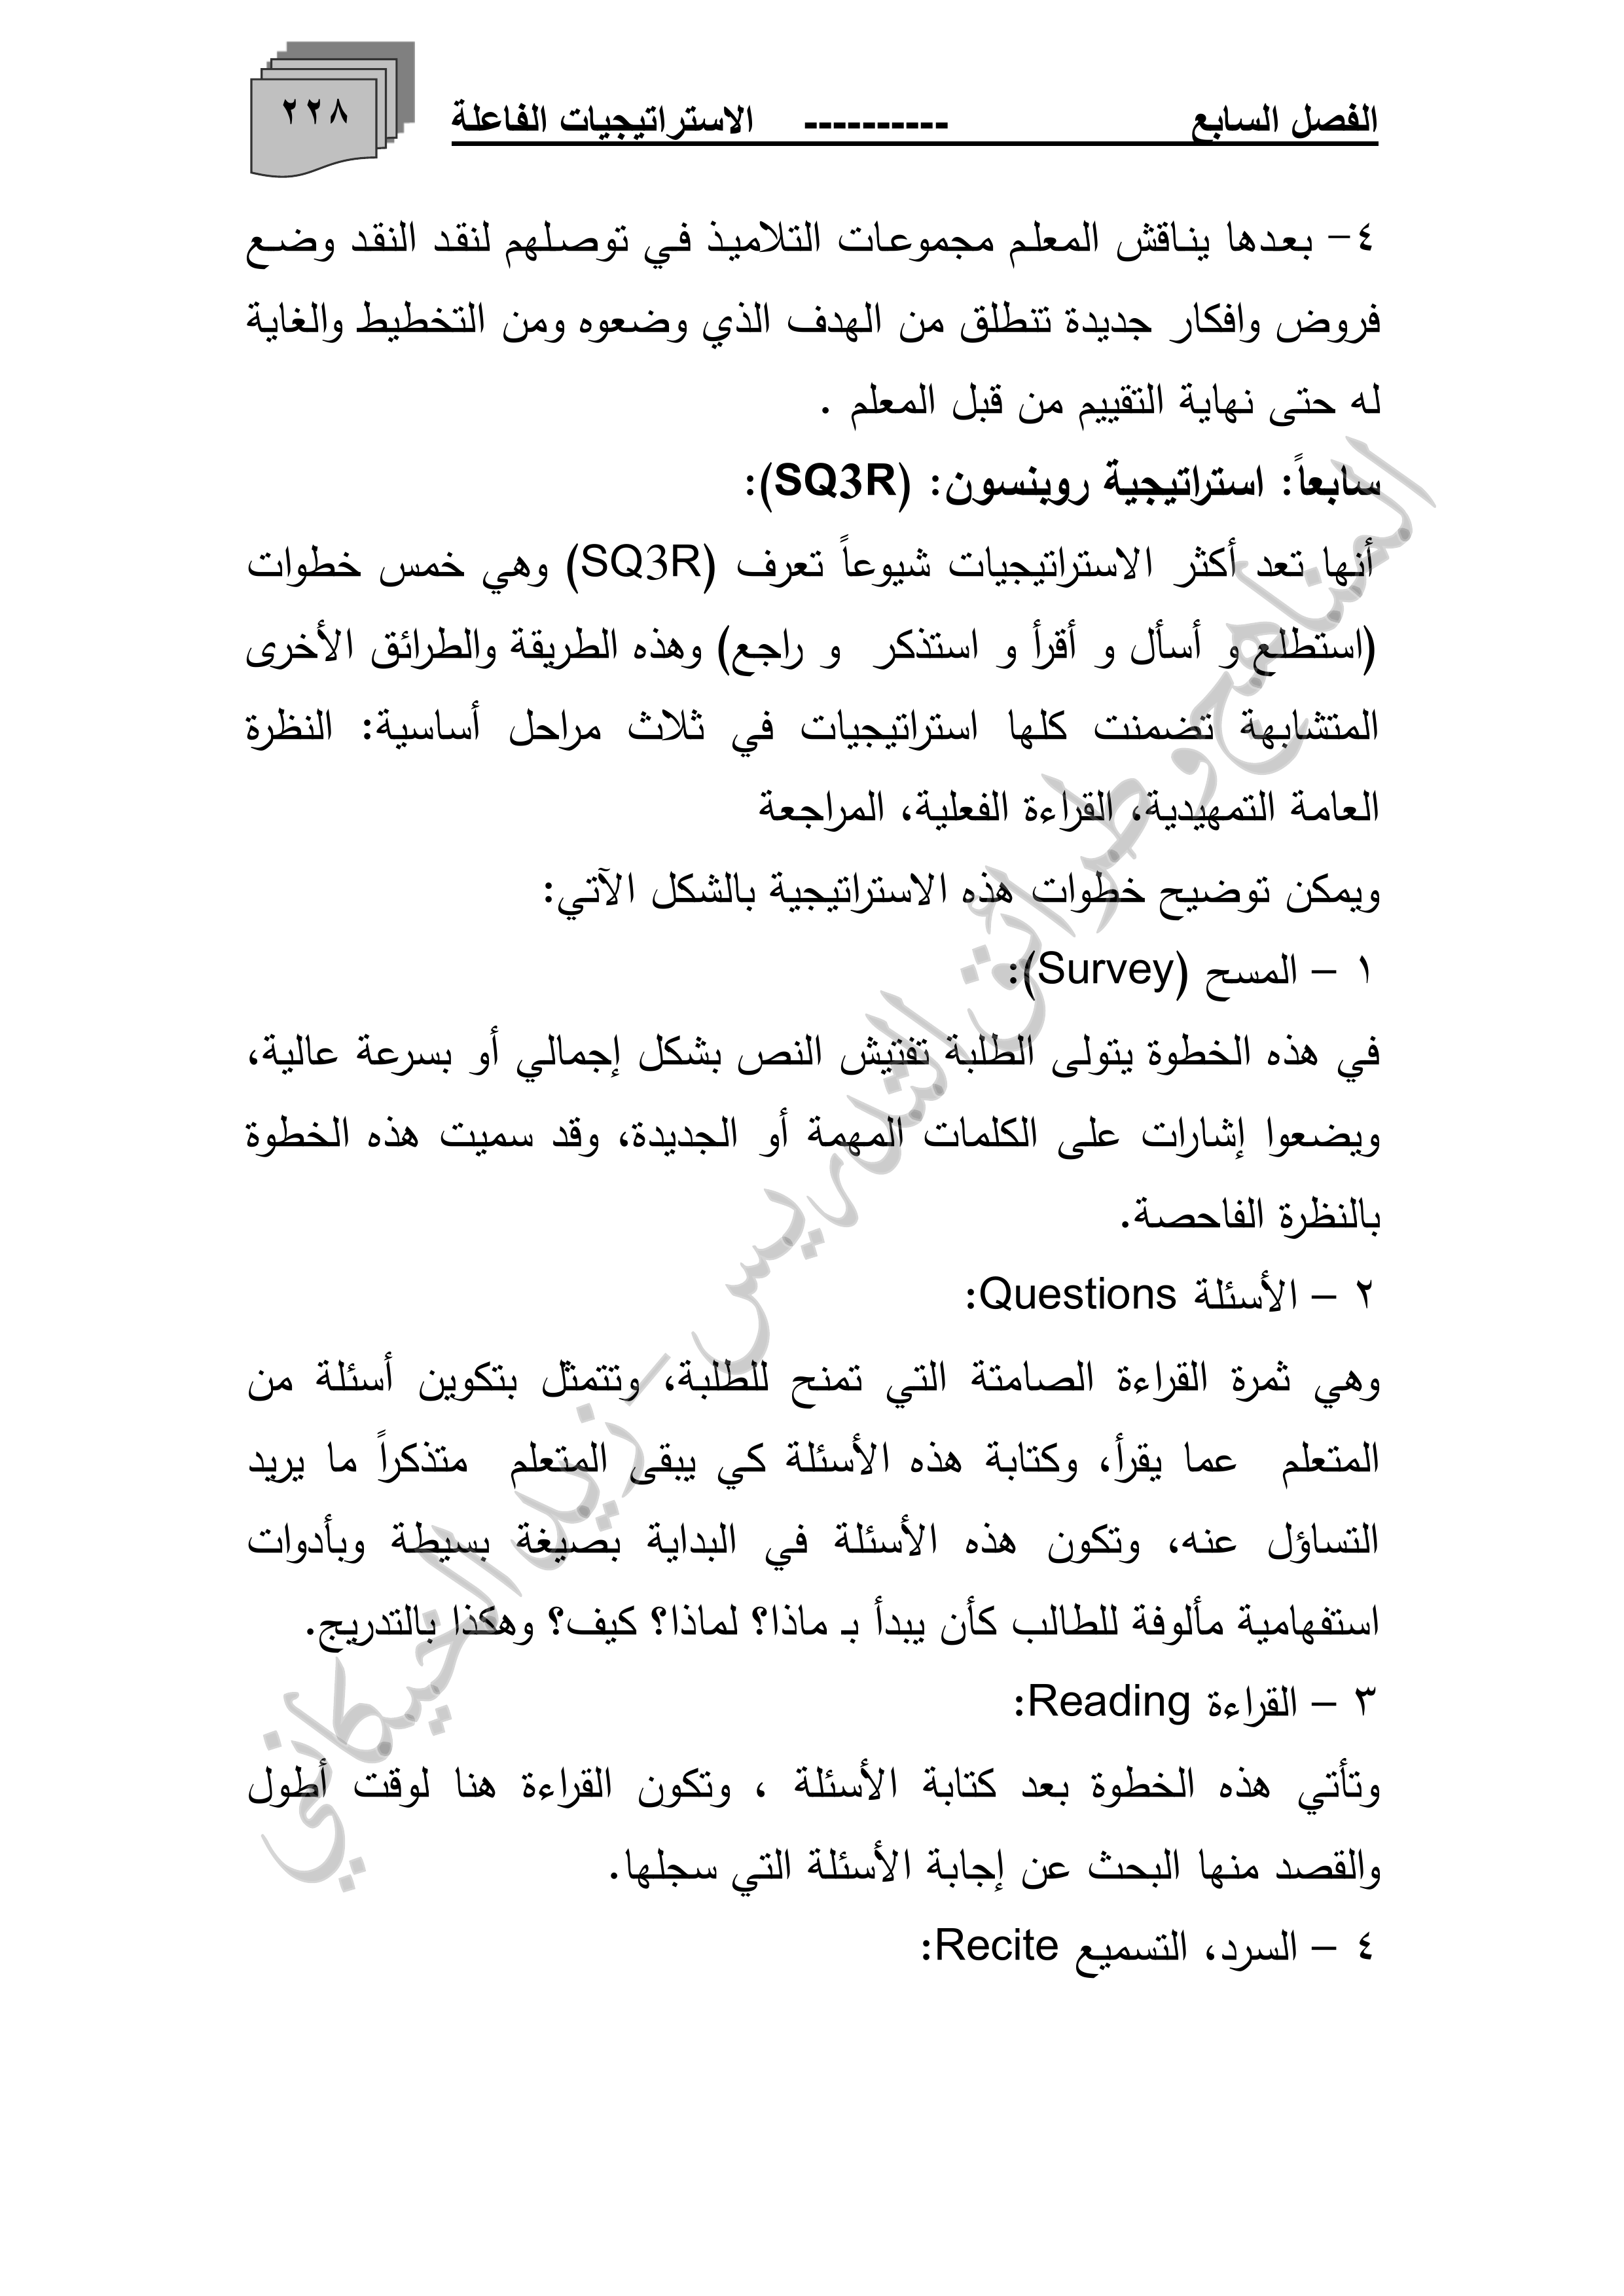 الفصل السابع ---------- الاستراتيجيات الفاعلة
٢٢٨
٤- بعدها يناقش المعلم مجموعات التلاميذ في توصلهم لنقد النقد وضع
فروض وافكار جديدة تنطلق من الهدف الذي وضعوه ومن التخطيط والغاية
له حتى نهاية التقييم من قبل المعلم .
سابعاً: استراتيجية روبنسون: (SQ3R):
أنها تعد أكثر الاستراتيجيات شيوعاً تعرف (SQ3R) وهي خمس خطوات
(استطلع و أسأل و أقرأ و استذكر و راجع) وهذه الطريقة والطرائق الأخرى
المتشابهة تضمنت كلها استراتيجيات في ثلاث مراحل أساسية: النظرة
العامة التمهيدية، القراءة الفعلية، المراجعة
ويمكن توضيح خطوات هذه الاستراتيجية بالشكل الآتي:
١ – المسح (Survey):
في هذه الخطوة يتولى الطلبة تفتيش النص بشكل إجمالي أو بسرعة عالية،
ويضعوا إشارات على الكلمات المهمة أو الجديدة، وقد سميت هذه الخطوة
بالنظرة الفاحصة.
٢ – الأسئلة Questions:
وهي ثمرة القراءة الصامتة التي تمنح للطلبة، وتتمثل بتكوين أسئلة من
المتعلم عما يقرأ، وكتابة هذه الأسئلة كي يبقى المتعلم متذكراً ما يريد
التساؤل عنه، وتكون هذه الأسئلة في البداية بصيغة بسيطة وبأدوات
استفهامية مألوفة للطالب كأن يبدأ بـ ماذا؟ لماذا؟ كيف؟ وهكذا بالتدريج.
٣ – القراءة Reading:
وتأتي هذه الخطوة بعد كتابة الأسئلة ، وتكون القراءة هنا لوقت أطول
والقصد منها البحث عن إجابة الأسئلة التي سجلها.
٤ – السرد، التسميع Recite:
المناهج وطرائق التدريس - زيد الخيكاني